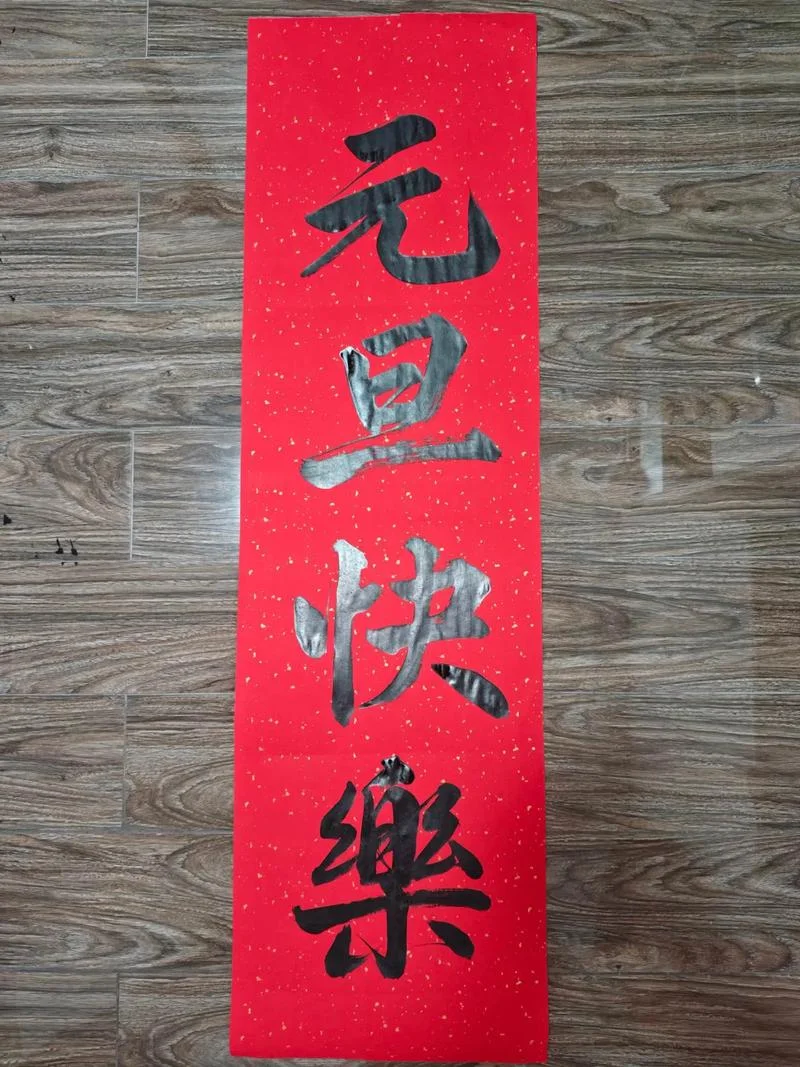 元旦快樂